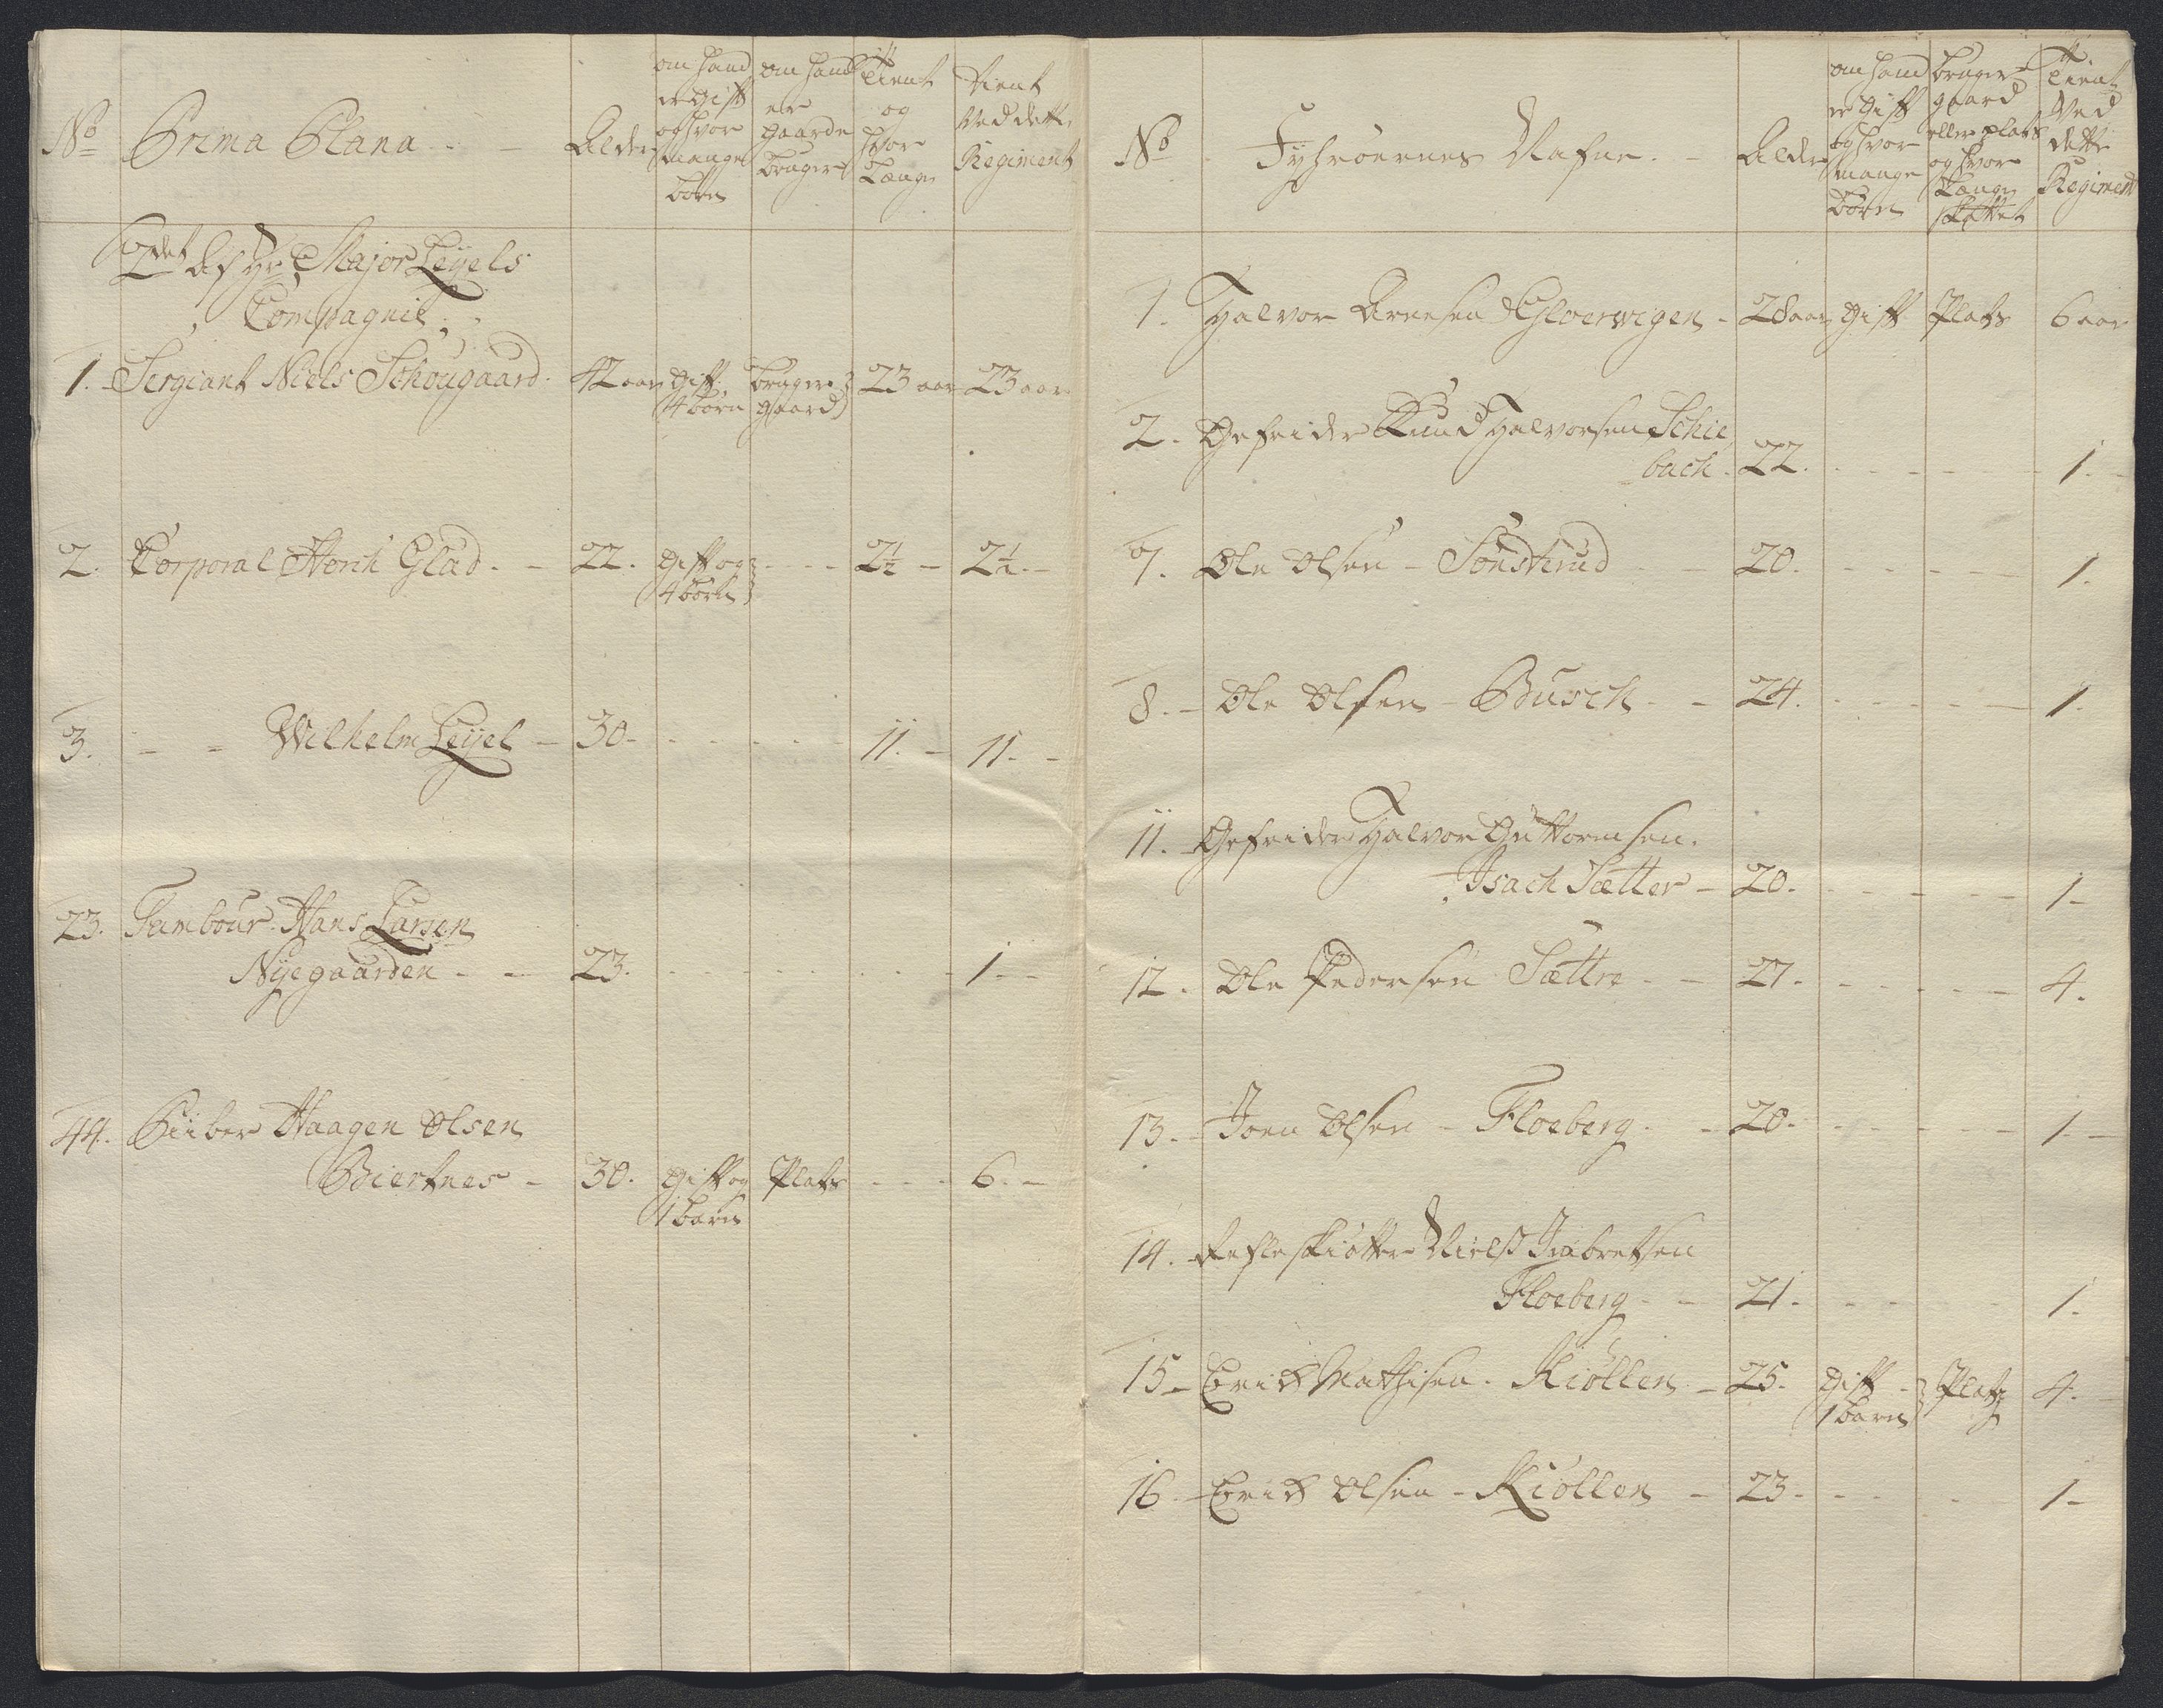 No Prima Plana - - Alder om hand er gift og hvor mange børn om hand er gaard bruger Tient og hvor Længe Tient Ved dette Regiment
2det Af Hr Major Leÿels
Compagnie
1. Sergiant Niels Schougaard. 42 aar gift bruger 23 aar 23 aar
4 børn gaard
2. Corporal Henrich Glad. - 22. gift og - - - 2½ - 2½ -
4 børn
3. - - Wilhelm Leÿel - 30 - - - - - - 11. - 11. -
23. Tambour Hans Larsen
Nÿegaarden - - 23. - - - - - - - 1 - -
44. Piiber Haagen Olsen
Biertnes - 30. gift og Plats - - - 6. -
1 barn
No Alder om hand er gift og hvor mange børn bruger gaard eller plads og hvor Længe Tient Ved dette Regiment
1. Halvor Arnesen - 28 aar gift Plats 6 aar
2. Gefreider Knud Halvorsen Schie
bach. 22. - - - - - 1. -
7. Ole Olsen - Sønsterud - - 20. - - - - - 1.
8. - Ole Olsen - Busch - - 24. - - - - - 1.
11. Gefreider Halvor Guttormsen.
Isach Sætter - 20. - - - - - 1 -
12. Ole Pedersen Sættre - - 27. - - - - - 4.
13. - Joen Olsen - Floeberg - - 20. - - - - - 1. -
14. Niels
Floeberg - - 21. - - - 1.
15 - Erich Mathisen. Kiøllen - 25. gift - Plats 4.
1 barn
16. - Erich Olsen - Kiøllen - 23 - - - - 1 -